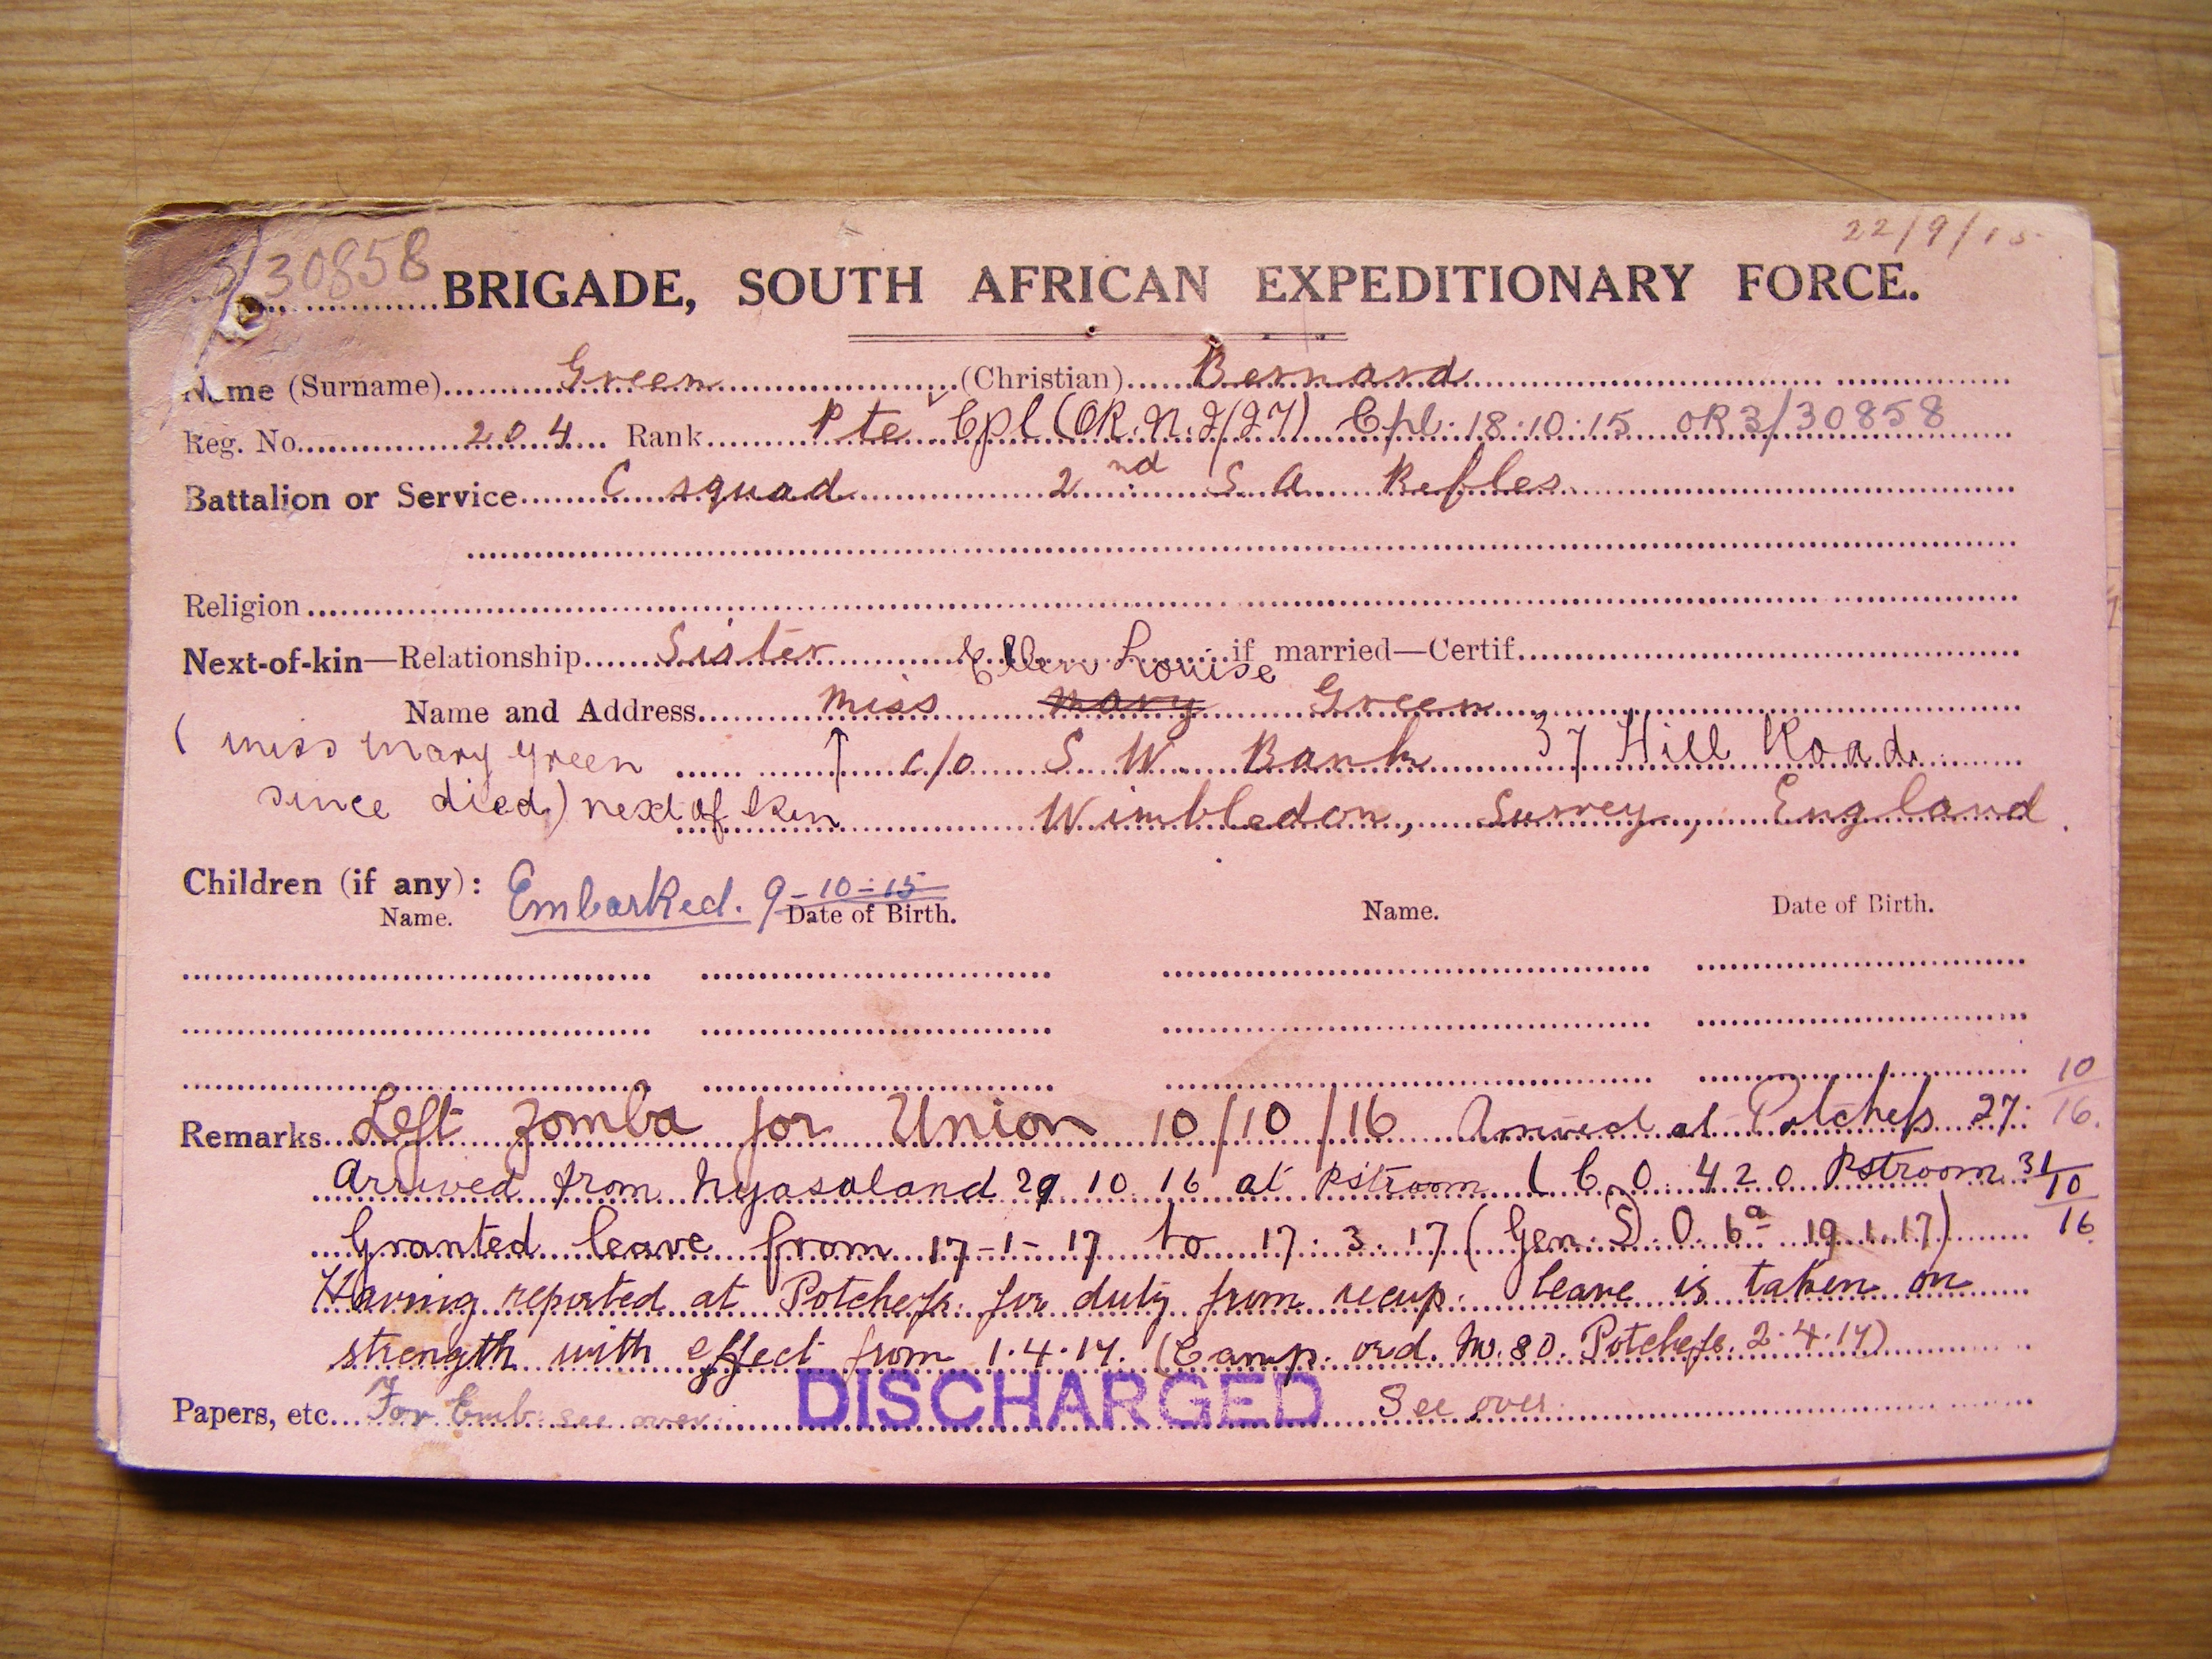 22/9/15
3/30858
BRIGADE, SOUTH AFRICAN EXPEDITIONARY FORCE.
Name (Surname) Green (Christian) Bernard
Reg. No. 204 Rank Pte Cpl (OR. N. 2/27) Cpl. 18.10.15 OR3/30858
Battalion or Service C squad 2nd S A Rifles
Religion
Next-of-kin—Relationship Sister if married—Certif.
Ellen Louise
Name and Address Miss Mary Green
(Miss Mary Green ↑ c/o S. W. Bank 37 Hill Road
since died) next of kin Wimbledon, Surrey, England.
Children (if any): Embarked. 9-10-15
Name. Date of Birth. Name. Date of Birth.
Remarks Left Zomba for Union 10/10/16 Arrived at Potchefs 27. 10/16.
Arrived from Nyasaland 29 10 16 at Pstroom (C O. 420 Pstroom 31/10/16
Granted leave from 17-1-17 to 17.3.17 (Gen. S) O. 6a 19.1.17)
Having reported at Potchefs. for duty from recup. leave is taken on
strength with effect from 1.4.17. (Camp. ord. No. 80. Potchefs. 2.4.17)
Papers, etc. For Emb. see over. DISCHARGED See over